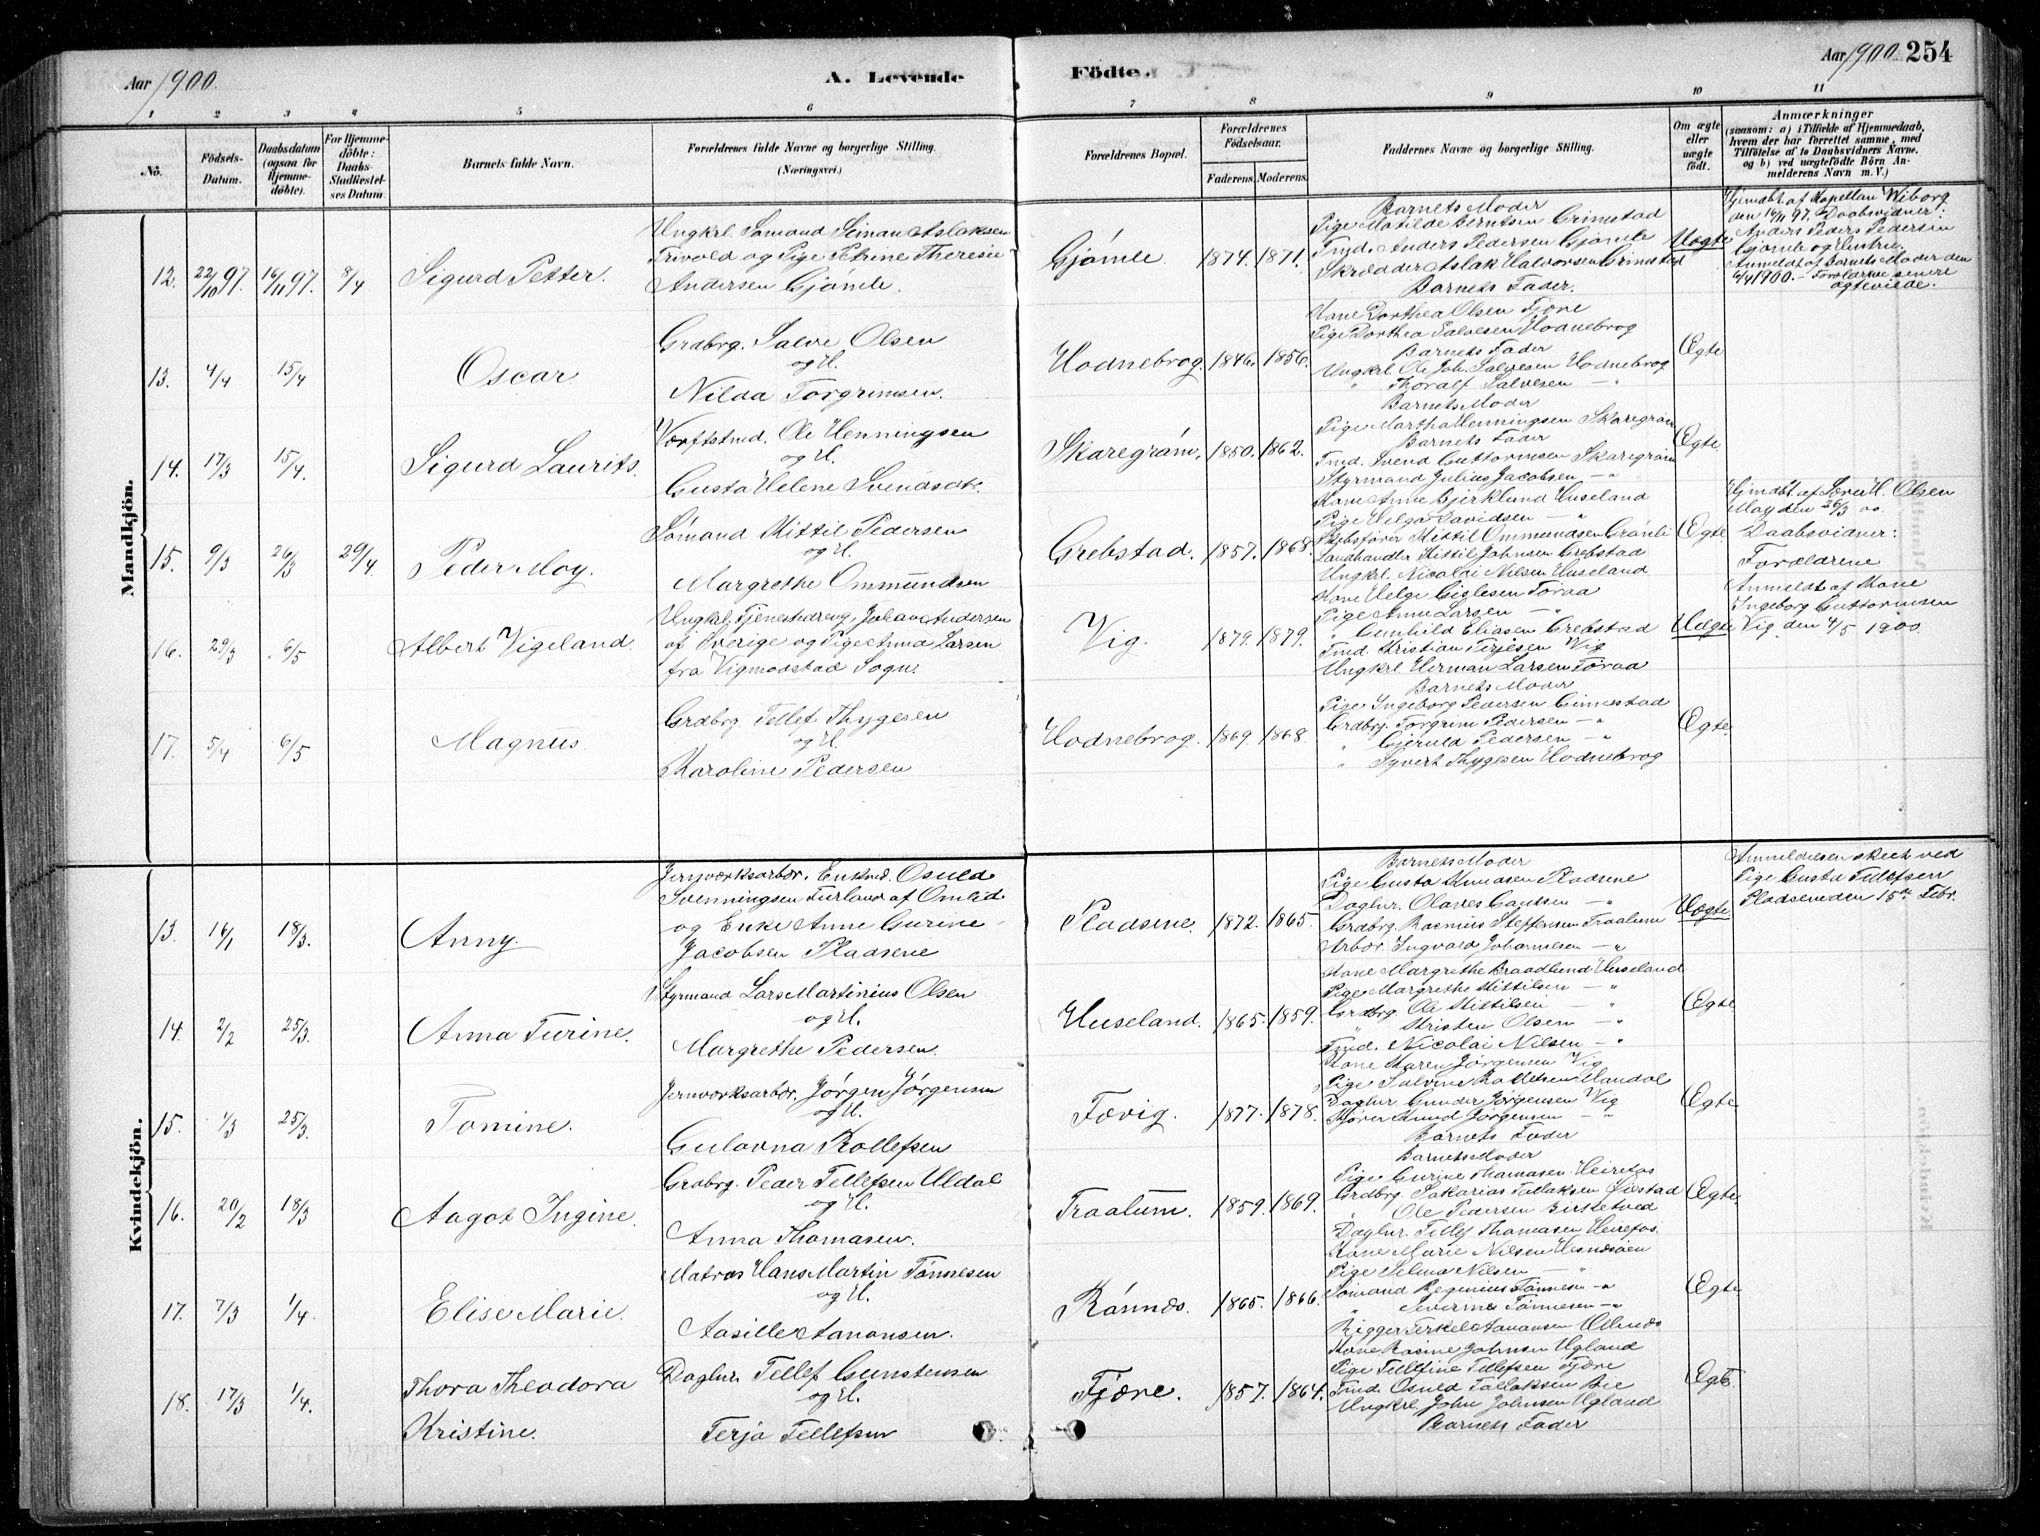 Aar 1900.
A. Levende
Födte.
Aar 1900. 254
1 2 3 4 5 6 7 8 9 10 11
No.
Födsels-Datum.
Daabsdatum (ogsaa for Hjemmedöbte).
For Hjemmedöbte: Daabs-Stadfæstelses Datum.
Barnets fulde Navn.
Forældrenes fulde Navne og borgerlige Stilling. (Næringsvei.)
Forældrenes Bopæl.
Forældrenes Födselsaar.
Faderens. Moderens.
Faddernes Navne og borgerlige Stilling.
Om ægte eller uægte födt.
Anmærkninger
(saasom: a) i Tilfælde af Hjemmedaab, hvem der har forrettet samme, med Tilföielse af to Daabsvidners Navne, og b) ved uægtefödte Börn Anmelderens Navn m. V.)
Mandkjön.
12. 22/10 97. 16/11 97. 8/4
Sigurd Petter.
Ungkrl. Sømand Simon Aslaksen
Trivold og Pige Petrine Theresie
Andersen Gjømle.
Gjømle 1874. 1871.
Barnets Moder
Pige Matilde Berntsen Grimstad
Tmd. Anders Pedersen Gjømle
Skrædder Aslak Halvorsen Grimstad
Barnets Fader.
Uægte
Hjemdbt. af Kapellan Wiborg
den 16/11 97. Daabsvidner:
Anders Peders Pedersen
Gjømle og Hustru.
Anmeldt af Barnets Moder den
6/4 1900. – Forældrene senere
ægteviede.
13. 4/4 15/4
Oscar
Grdbrg. Salve Olsen
og H.
Nilda Torgrimsen.
Hodnebrog. 1846. 1856.
Kone Dorthea Olsen Fjære
Pige Dorthea Salvesen Hodnebrog
Barnets Fader
Ungkrl. Ole Joh. Salvesen Hodnebrog
" Thoralf Salvesen — "
Ægte
14. 17/3 15/4.
Sigurd Laurits.
Værftstmd. Ole Henningsen
og H.
Gusta Helene Svendsdtr.
Skaregrøm. 1850. 1862.
Barnets Moder
Pige Martha Henningsen Skaregrøm
Barnets Fader
Tmd. Svend Guttormsen Skaregrøm
Styrmand Julius Jacobsen — "
Ægte.
15. 9/3 26/3 29/4.
Peder Moy.
Sømand Kittil Pedersen
og H.
Margrethe Ommundsen
Grebstad. 1857. 1868.
Kone Anne Bjerklund Huseland
Pige Helga Davidsen — "
Skibsfører Kittil Ommundsen Grønli
Landhandler Kittil Johnsen Grebstad
Ungkrl. Nicolai Nilsen Huseland
Ægte
Hjmdbt. af Søren H. Olsen
Moy den 26/3 00.
Daabsvidner:
Forældrene
16. 29/3 6/5
Albert Vigeland.
Ungkl. Tjenestedreng Johan Andersen
af Sverige og Pige Anna Larsen
fra Vigmodstad Sogn.
Vig. 1879. 1879.
Kone Helge Giglesen Føraa
Pige Anne Larsen — "
" Gunhild Eliasen Grebstad
Tmd. Christian Terjesen Vig
Ungkrl. Herman Larsen Føraa
Uægte
Anmeldt af Kone
Ingeborg Guttormsen
Vig. den 4/5 1900
17. 5/4 6/5
Magnus.
Grdbrg. Tellef Thygesen
og H.
Karoline Pedersen
Hodnebrog. 1869. 1868.
Barnets Moder
Pige Ingeborg Pedersen Grimestad
Grdbrg. Torgrim Pedersen — "
" Gjeruld Pedersen — "
" Syvert Thygesen Hodnebrog
Ægte.
Kvindekjön.
13. 16/1 18/3.
Anny.
Jernværksarbdr. Enkmd. Osuld
Svenningsen Furland af Omlid
og Enke Anne Gurine
Jacobsen Pladsene
Pladsene. 1872. 1865.
Barnets Moder
Pige Gusta Knudsen Pladsene
Daglnr. Olaves Gautsen — "
Grdbrg. Rasmus Steffensen Fraalum
Arbdr. Ingvald Johannesen — "
Uægte
Anmeldelsen skeet ved
Pige Gusta Tellefsen
Pladsene den 15de Febr.
14. 2/2 25/3.
Anna Turine.
Styrmand Lars Martinius Olsen
og H.
Margrethe Pedersen.
Huseland. 1865. 1859.
Kone Margrethe Braadlund Huseland
Pige Margrethe Kittilsen — "
Grdbrg. Ole Kittilsen — "
" Kristen Olsen — "
Tmd. Nicolai Nilsen — "
Ægte
15. 1/3 25/3.
Tomine.
Jernværksarbdr. Jørgen Jørgensen
og H.
Gulovna Rollefsen
Fævig. 1877. 1878.
Kone Maren Jørgensen Vig
Pige Salvine Rollefsen Mandal
Daglnr. Gunder Jørgensen Vig
Knud Jørgensen — "
Barnets Fader
Ægte
16. 20/2 18/3
Aagot Ingine.
Grdbrg. Peder Tellefsen Uldal
og H.
Anna Thomasen.
Fraalum. 1859. 1869.
Barnets Moder
Pige Gurine Thomasen Heirefos
Grdbrg. Sakarias Tallaksen
Ole Pedersen Birketved
Daglnr. Tellef Thomasen Heirefos.
Ægte.
17. 7/3 1/4.
Elise Marie.
Matros Hans Martin Tønnesen
og H.
Aasille Aanonsen.
Rønnes. 1865. 1866.
Kone Marie Nilsen Hesnesøen
Pige Selma Nilsen — "
Sømand Reginius Tønnesen — "
" Severines Tønnesen — "
Rigger Terkel Aanonsen
Ægte
18. 17/3 1/4.
Thora Theodora
Kristine.
Daglnr. Tellef Gunstensen
og H.
Terja Tellefsen
Fjære. 1857. 1864.
Kone Rasine Johnsen Ugland
Pige Tellefine Tellefsen Fjære
Tmd. Osuld Tallaksen Bie
Ungkrl. John Johnsen Ugland
Barnets Fader
Ægte.